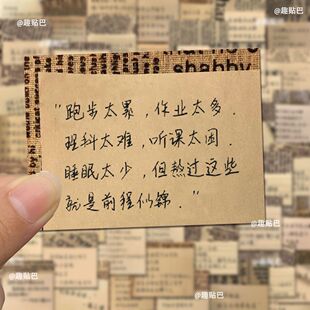 @趣贴巴
@趣贴巴
shabby
"跑步太累，作业太多．
理科太难，听课太困．
睡眠太少，但熬过这些
就是前程似锦．"
@趣贴巴
@趣贴巴
@趣贴巴
@趣贴巴
@趣贴巴